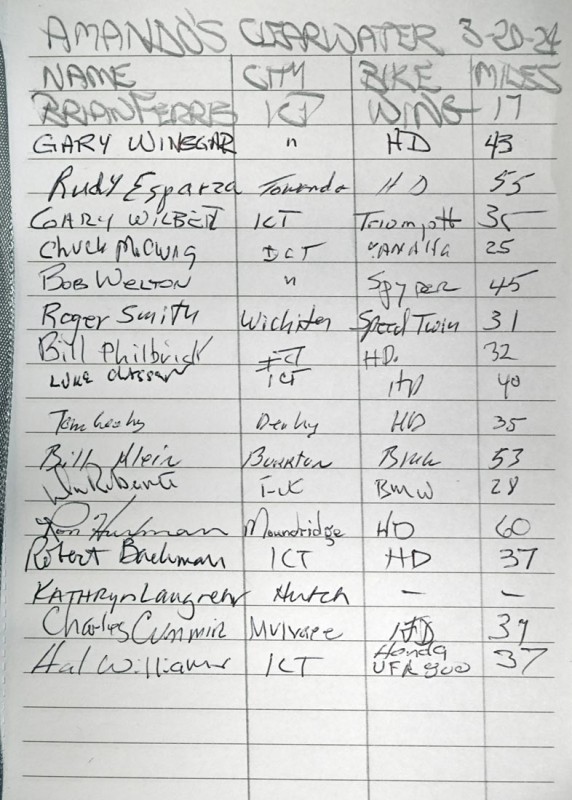 AMANDO'S CLEARWATER 3-20-24
NAME CITY BIKE MILES
BRIAN FERRIS ICT WING 17
GARY WINEGAR " HD 43
Rudy Esparza Towanda HD 55
GARY WILBERT ICT 35
Chuck ICT YAMAHA 25
BOB WELTON " Spyder 45
Roger Smith Wichita Speed Twin 31
Bill Philbrick ICT HD. 32
LUKE ICT HD 40
Tom Derby HD 35
Billy Klein Burrton 53
BMW 28
Ron Moundridge HD 60
Robert Bachman ICT HD 37
KATHRYN Hutch — —
Charles Cummins Mulvane HD 39
Hal Williams ICT Honda 37
VFR 800